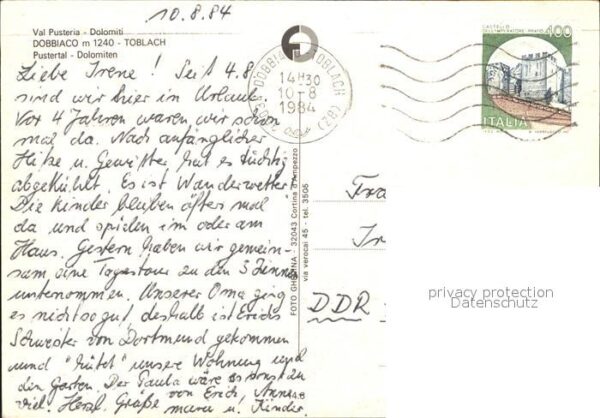 10.8.84
Val Pusteria - Dolomiti
DOBBIACO m 1240 - TOBLACH
Pustertal - Dolomiten
Liebe Irene! Seit 4.8.
sind wir hier in Urlaub.
Vor 4 Jahren waren wir schon
mal da. Nach anfänglicher
Hitze u. Gewitter hat es tüchtig
abgekühlt. Es ist Wanderwetter.
Die Kinder bleiben öfters mal
da und spielen im oder am
Haus. Gestern haben wir gemein-
sam eine Tagestour zu den 3 Zinnen
unternommen. Unserer Oma ging
es nicht so gut, deshalb ist Erichs
Schwester von Dortmund gekommen
und "hütet" unsere Wohnung und
den Garten. Der Paula wäre es sonst zu
viel. Herzl. Grüße von Erich, Anne
u. Kinder.
DOBBIACO TOBLACH (BZ)
14H30
10-8
1984
FOTO GHEDINA - 32043 Cortina d'Ampezzo
via verocai 45 - tel. 3506
CASTELLO
DELL'IMPERATORE - PRATO
400
ITALIA
DDR
privacy protection
Datenschutz